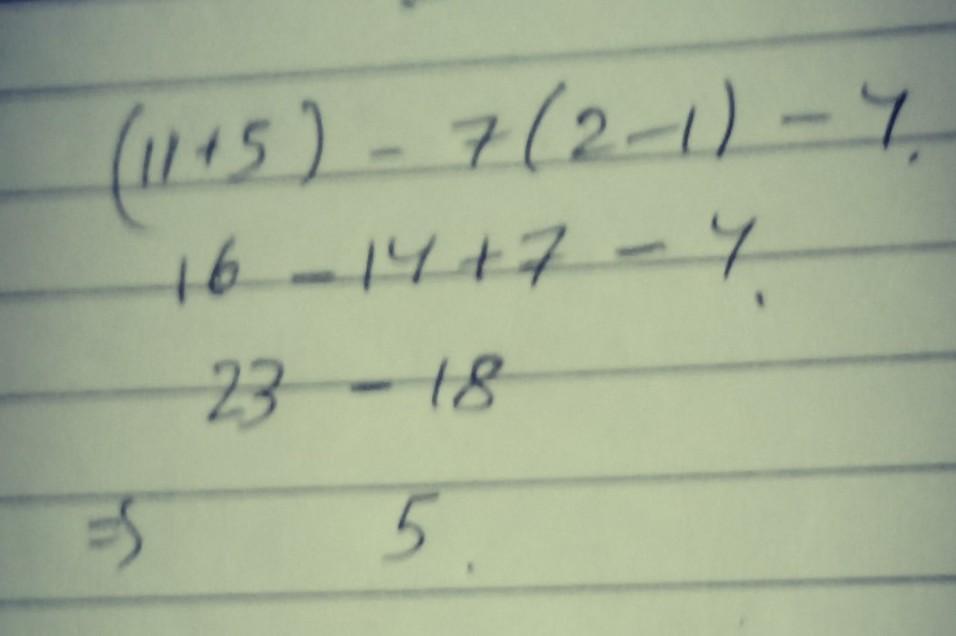 (11+5) - 7(2-1) - 4.
16 - 14 + 7 - 4.
23 - 18
⇒ 5.